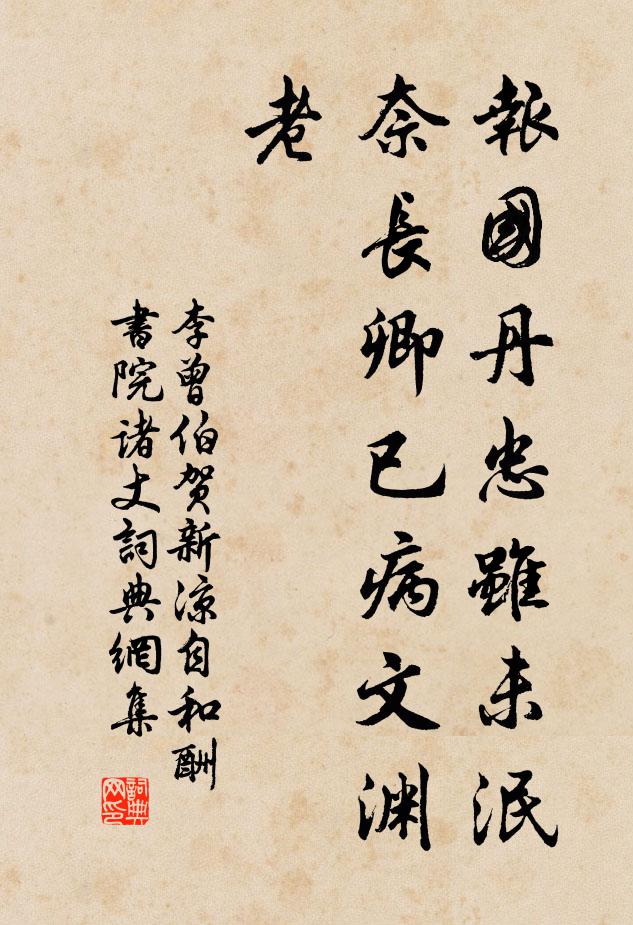 報國丹忠雖未泯
奈長卿已病文渊
老
李曾伯贺新凉自和酬
書院诸丈詞典網集
詞典网印